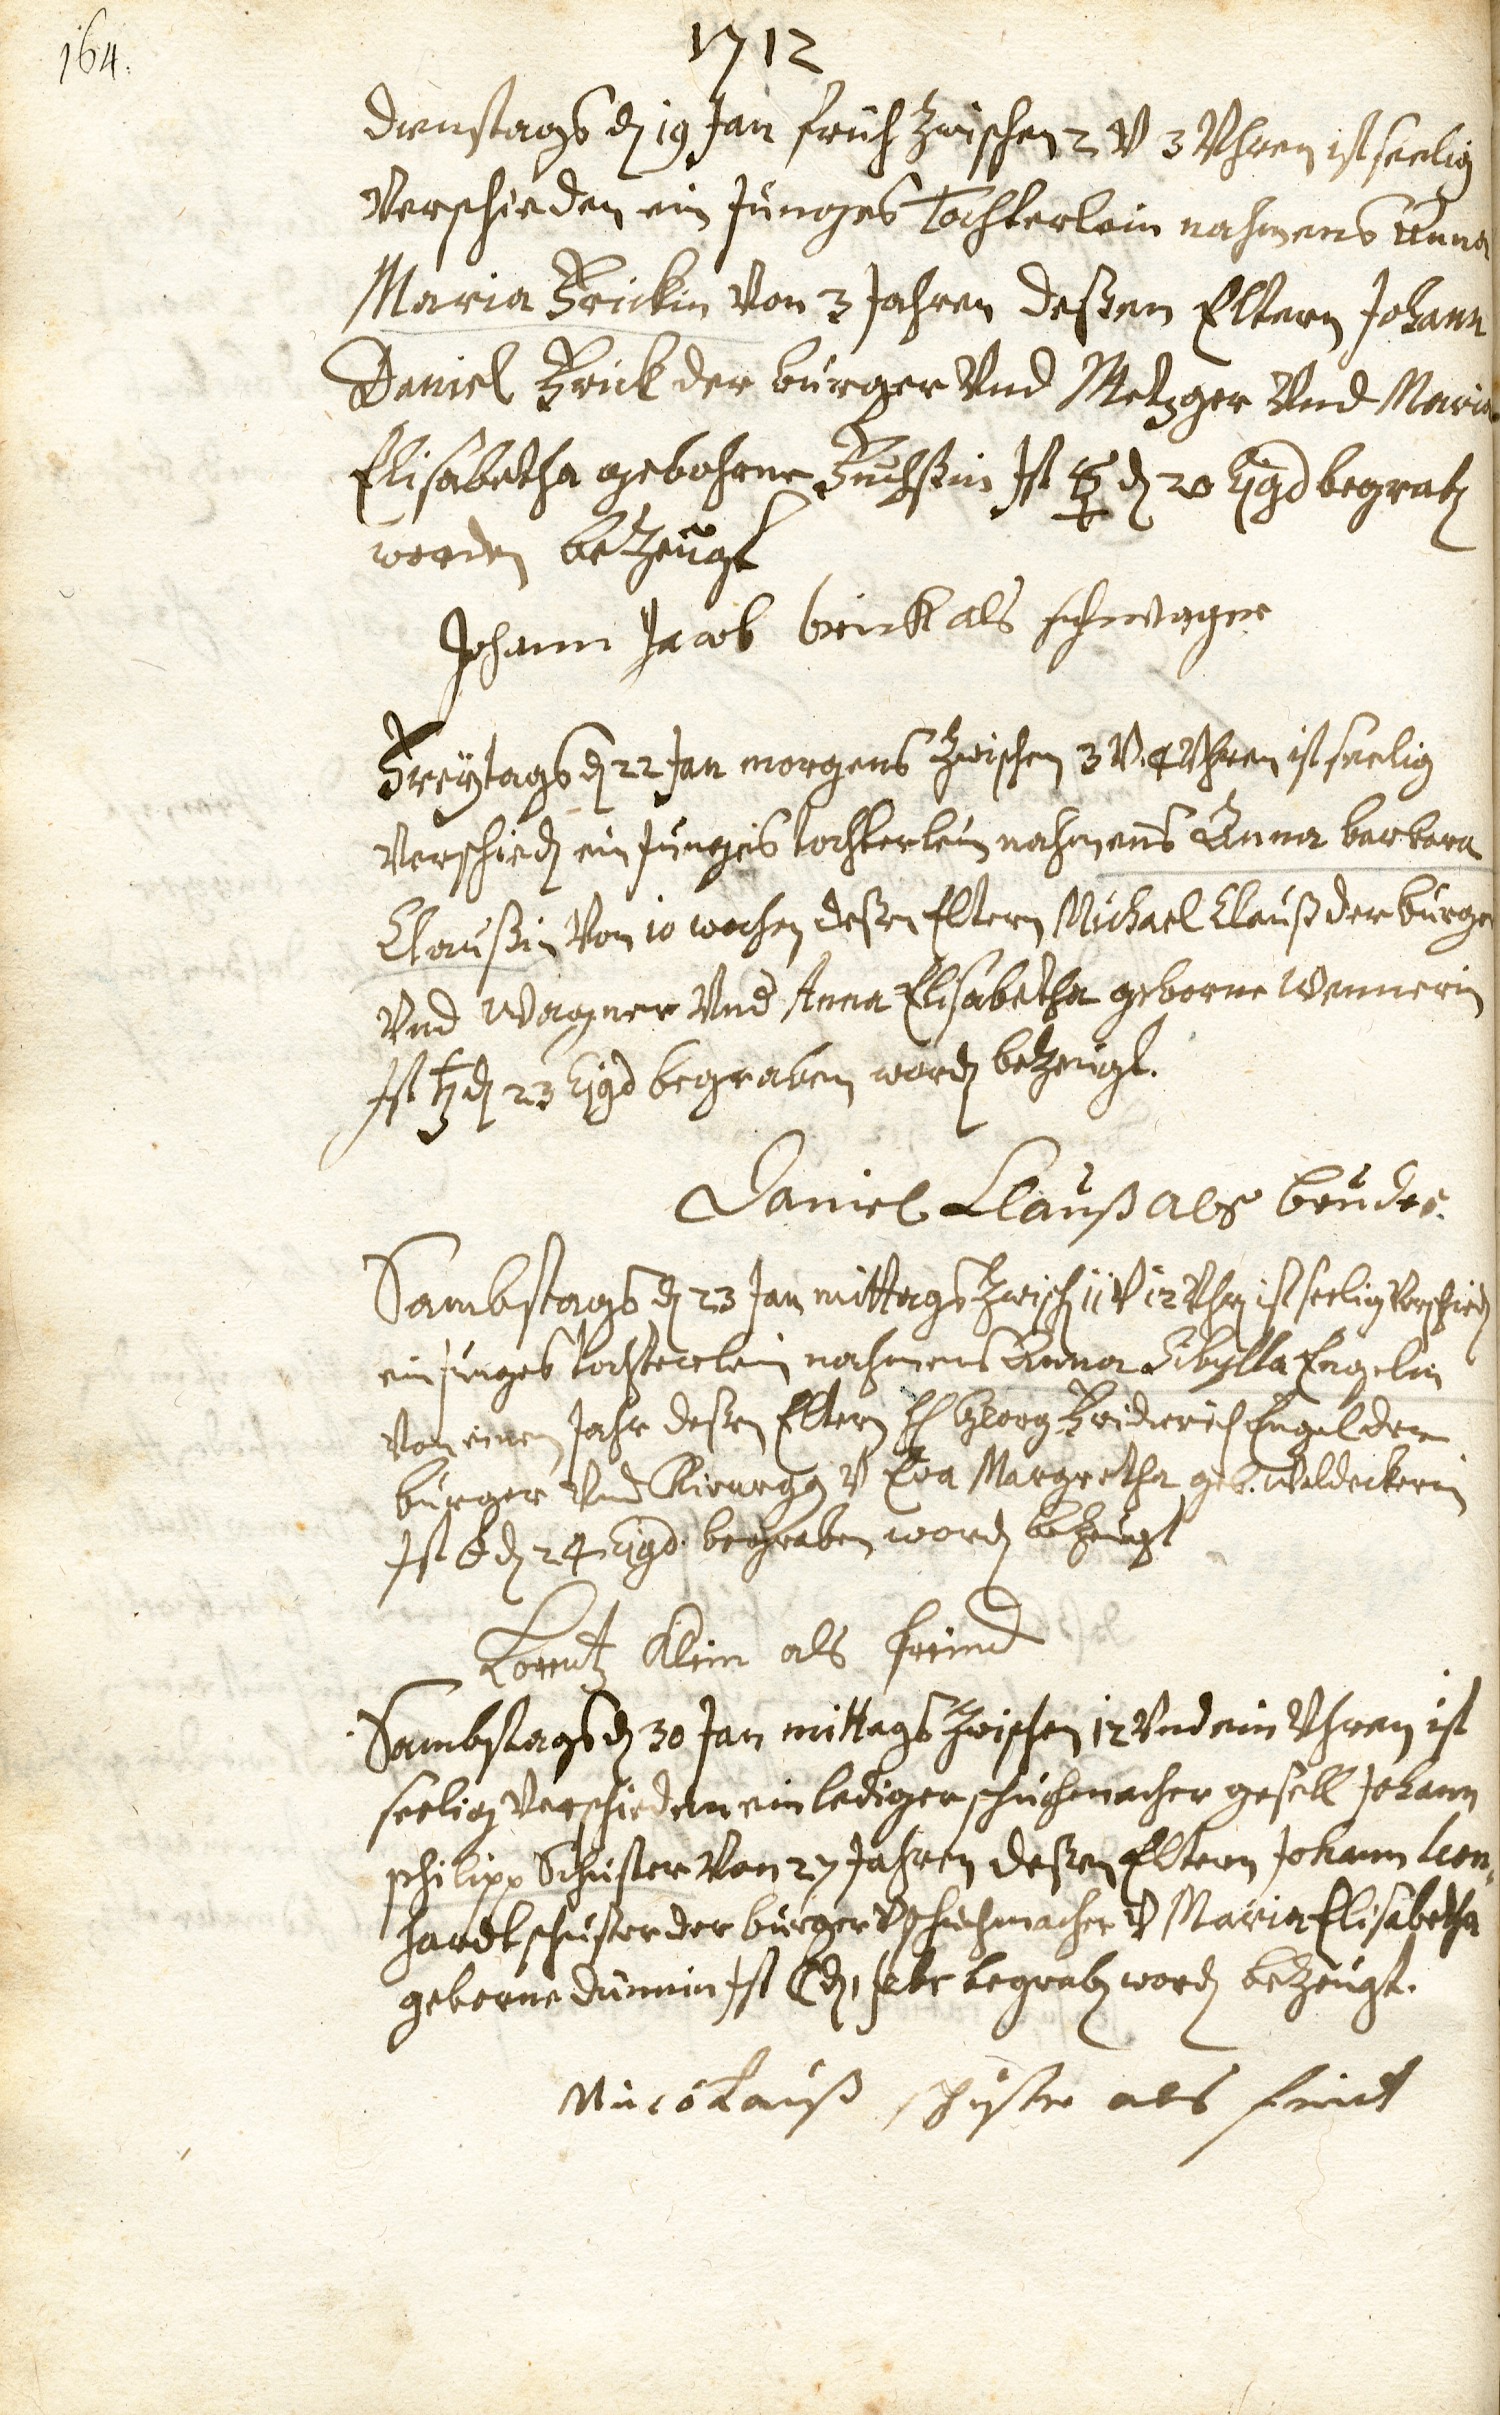 164.
1712
Dienstags dẽ 19 Jan früh Zwischen 2 V 3 Uhren ist seelig
Verschieden ein Junges Tochterlein nahmens Anna
Maria Brickin Von 3 Jahren deßen Eltern Johann
Daniel Brick der burger Und Metzger Und Maria
Elisabetha gebohrne Buchßin Ist ☿ dẽ 20 Ejgd begrabẽ
worden beZeugt
Johann Jacob brick als schwager
Freÿtags dẽ 22 Jan morgens Zwischen 3 V. 4 Uhren ist seelig
Verschiedẽ ein Junges tochterlein nahmens Anna barbara
Claußin Von 10 wochen deßen Eltern Michael Clauß der burger
Und Wagner Und Anna Elisabetha geborne Wennerin
Ist ♄ dẽ 23 Ejgd begraben wordẽ beZeugt.
Daniel Clauß als bruder.
Sambstags dẽ 23 Jan mittags Zwischẽ 11 V 12 Uhrẽ ist seelig Verschiedẽ
ein Junges tochterlein nahmens Anna Sibylla Engelin
Von einem Jahr deßen Eltern H Georg Friderich Engel der
burger Und Chirurgg V Eva Margretha geb. Waldeckerin
Ist dẽ 24 Ejgd. begraben wordẽ beZeugt
Lorentz Klein als freund
Sambstags dẽ 30 Jan mittags Zwischen 12 Und ein Uhren ist
seelig Verschieden ein lediger schuhmacher gesell Johann
philipp Schuster Von 27 Jahren deßen Eltern Johann Leon,
hardt schuster der burger V schuhmacher V Maria Elisabetha
geborne Dünnin Ist ☾ dẽ 1 febr begrabẽ wordẽ beZeugt.
Nicolauß schuster als freind